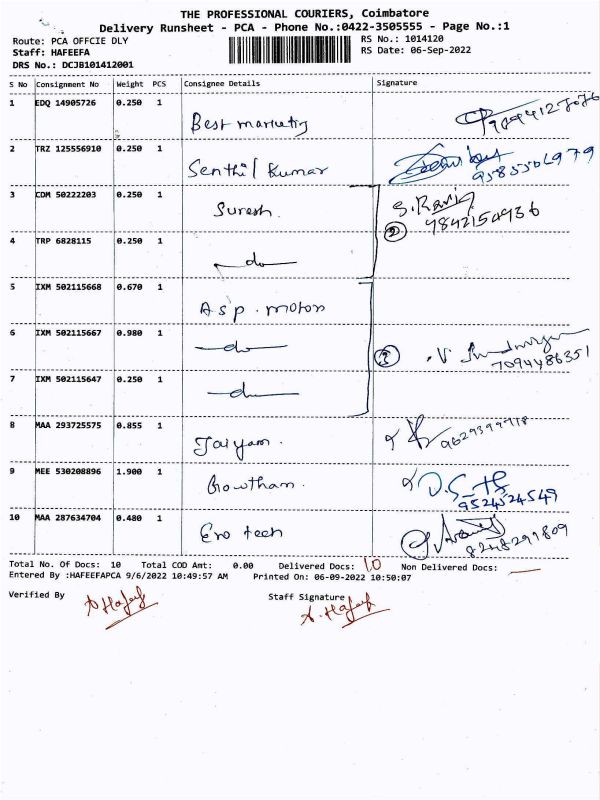 THE PROFESSIONAL COURIERS, Coimbatore
Delivery Runsheet - PCA - Phone No.:0422-3505555 - Page No.:1
Route: PCA OFFCIE DLY RS No.: 1014120
Staff: HAFEEFA RS Date: 06-Sep-2022
DRS No.: DCJB101412001
S No Consignment No Weight PCS Consignee Details Signature
1 EDQ 14905726 0.250 1 Best marketing
2 TRZ 125556910 0.250 1 Senthil Kumar
3 CDM 50222203 0.250 1 Suresh. S. Ravi 9842154936
4 TRP 6828115 0.250 1 do 2
5 IXM 502115668 0.670 1 Asp. motors
6 IXM 502115667 0.980 1 do 3 7094486351
7 IXM 502115647 0.250 1 do
8 MAA 293725575 0.855 1 9629399918
9 MEE 530208896 1.900 1 Gowtham. 9524524549
10 MAA 287634704 0.480 1 Ero tech 8248291809
Total No. Of Docs: 10 Total COD Amt: 0.00 Delivered Docs: 10 Non Delivered Docs:
Entered By :HAFEEFAPCA 9/6/2022 10:49:57 AM Printed On: 06-09-2022 10:50:07
Verified By A. Hafeef Staff Signature A. Hafeef